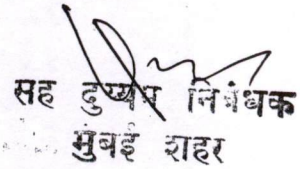 सह दुय्यम निबंधक
मुंबई शहर